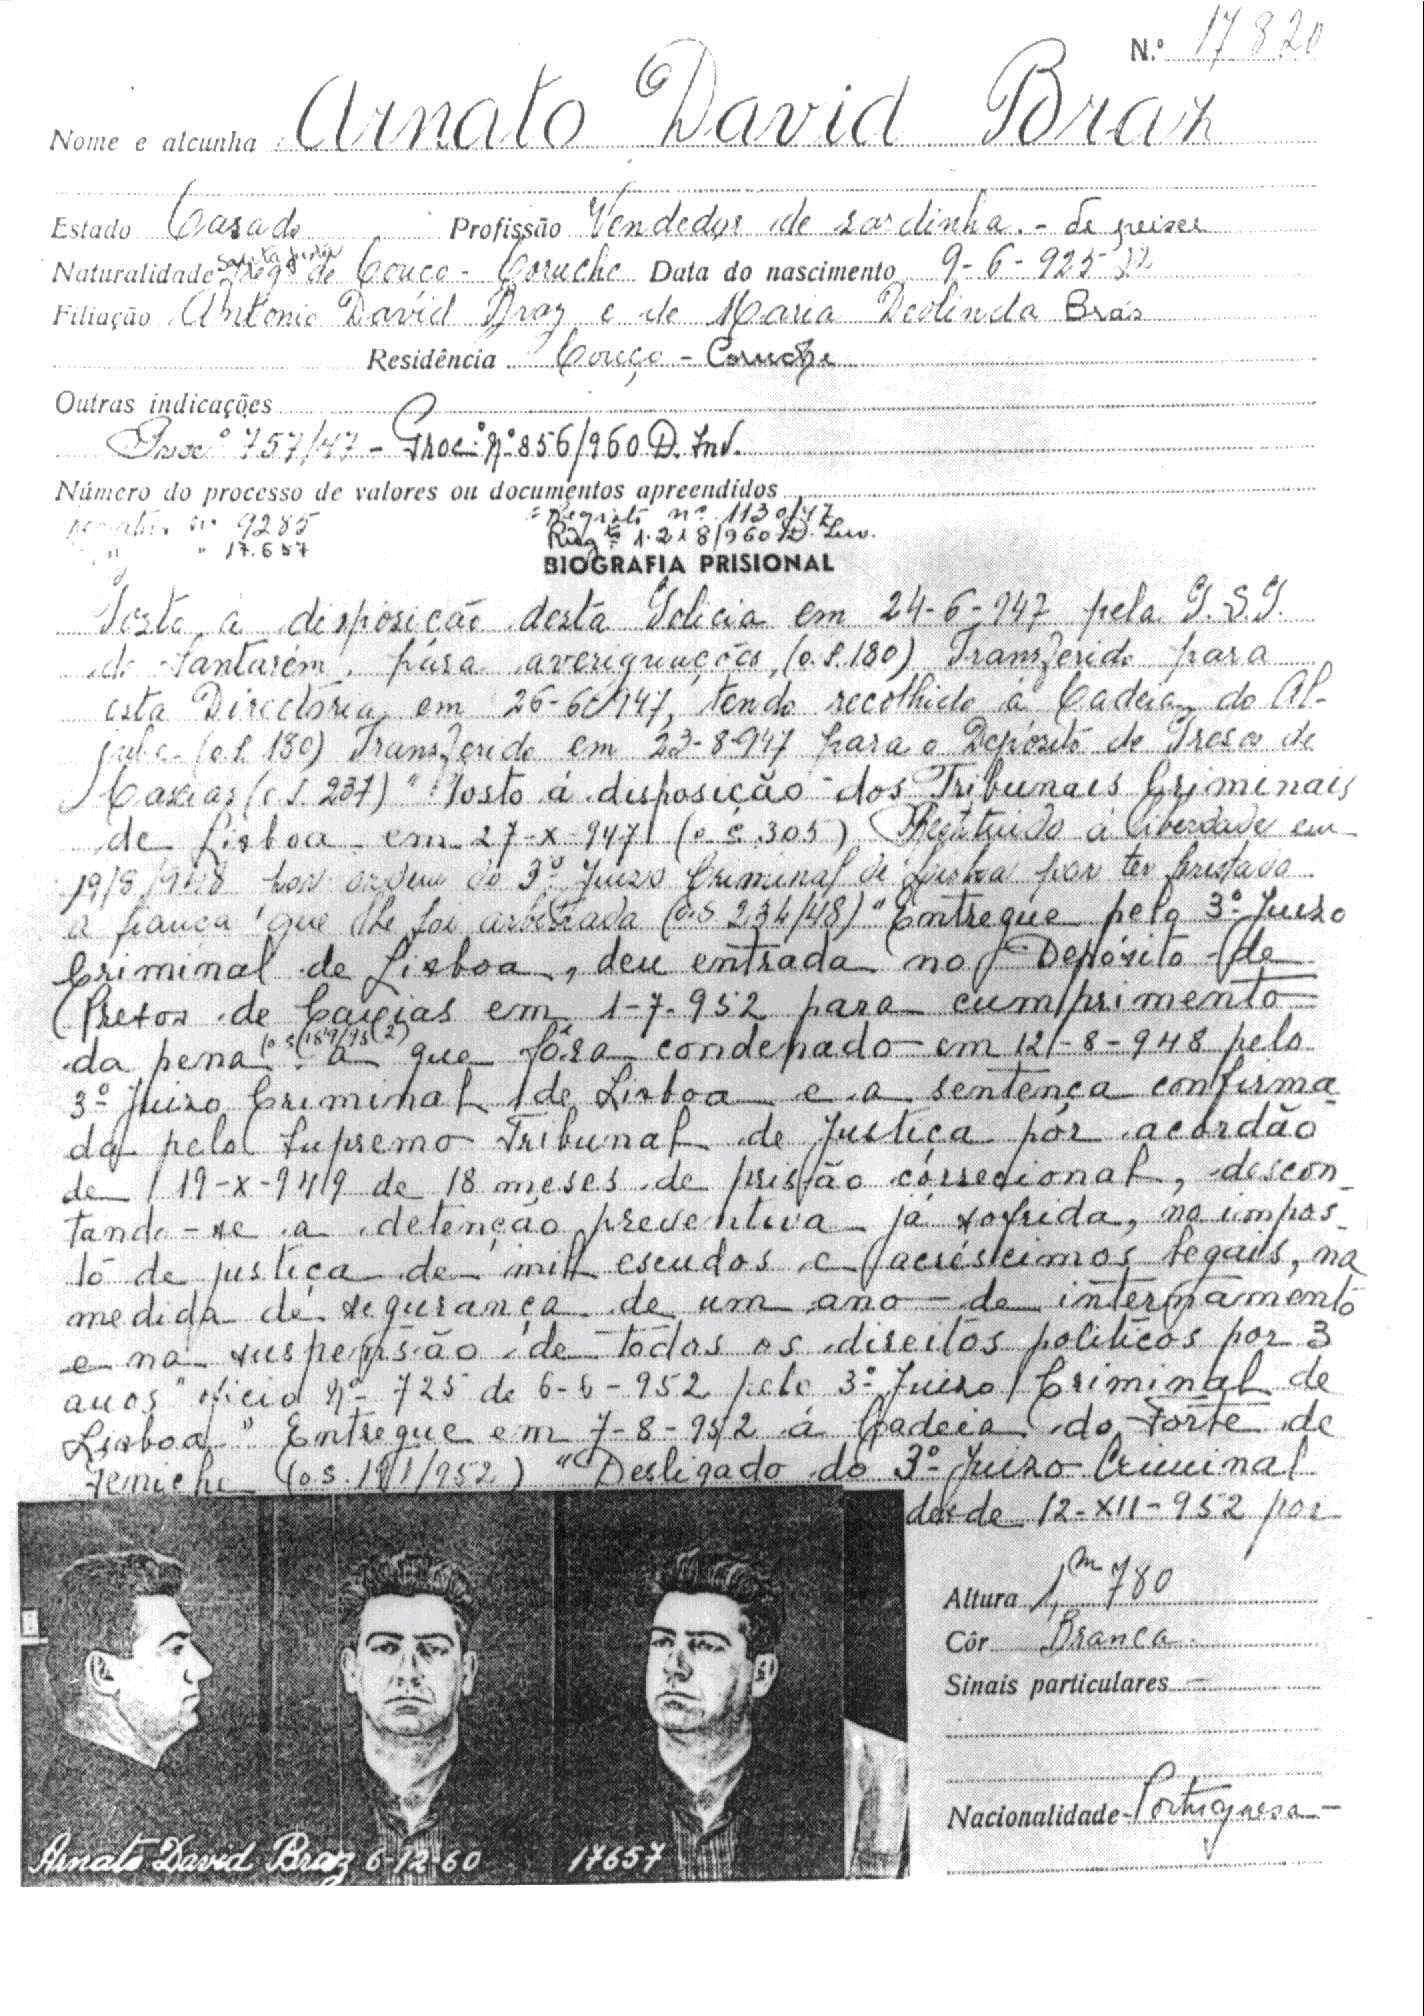 N.º 17820
Nome e alcunha Arnato David Braz
Estado Casado Profissão Vendedor de sardinha. - de peixes
Naturalidade Freg. de Couço - Coruche Data do nascimento 9-6-925
Filiação Antonio David Braz e de Maria Deolinda Brás
Residência Couço - Coruche
Outras indicações
Procº 757/47 - Proc.º Nº 856/960 D. Inv.
Número do processo de valores ou documentos apreendidos
nº 9285 Registo nº 1130/47
" 17.657 Regtº 1.218/960 D. Inv.
BIOGRAFIA PRISIONAL
Posto á disposição desta Policia em 24-6-947 pela P.S.P.
de Santarém, para averiguações, (o.s.180) Transferido para
esta Directoria em 26-6-947, tendo recolhido á Cadeia do Al-
jube (o.s. 180) Transferido em 23-8-947 para o Depósito de Presos de
Caxias (o.s. 237) " Posto á disposição dos Tribunais Criminais
de Lisboa em 27-X-947 (o.s. 305) Restituido á liberdade em
19/8/948 por ordem do 3º Juizo Criminal de Lisboa por ter prestado
a fiança que lhe foi arbitrada (o.s 234/48) " Entregue pelo 3º Juizo
Criminal de Lisboa, deu entrada no Depósito de
Presos de Caxias em 1-7-952 para cumprimento
da pena (o.s. 189/952) a que fôra condenado em 12-8-948 pelo
3º Juizo Criminal de Lisboa e a sentença confirma-
da pelo Supremo Tribunal de Justiça por acordão
de 19-X-949 de 18 meses de prisão correcional, descon-
tando-se a detenção preventiva já sofrida, no impos-
to de justiça de mil escudos e acréscimos legais, na
medida de segurança de um ano de internamento
e na suspensão de todos os direitos politicos por 3
anos " oficio Nº 725 de 6-6-952 pelo 3º Juizo Criminal de
Lisboa " Entregue em 7-8-952 á Cadeia do Forte de
Peniche (o.s. 191/952) " Desligado do 3º Juizo Criminal
desde 12-XII-952 por
Altura 1,m780
Côr Branca
Sinais particulares —
Nacionalidade Portuguesa
Arnato David Braz 6-12-60 17657